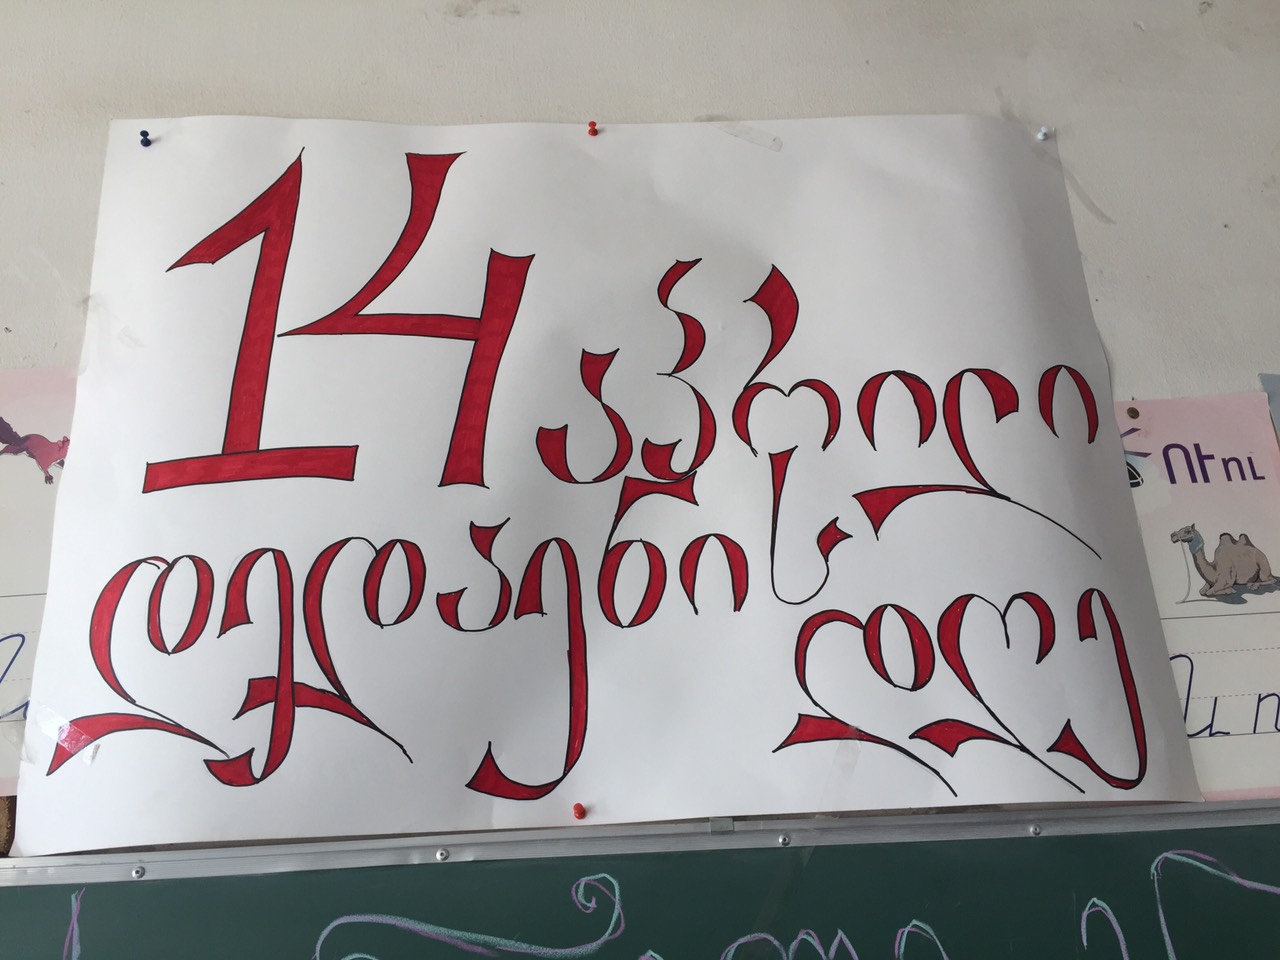 14 აპრილი
დედაენის დღე
ՈՒ ու